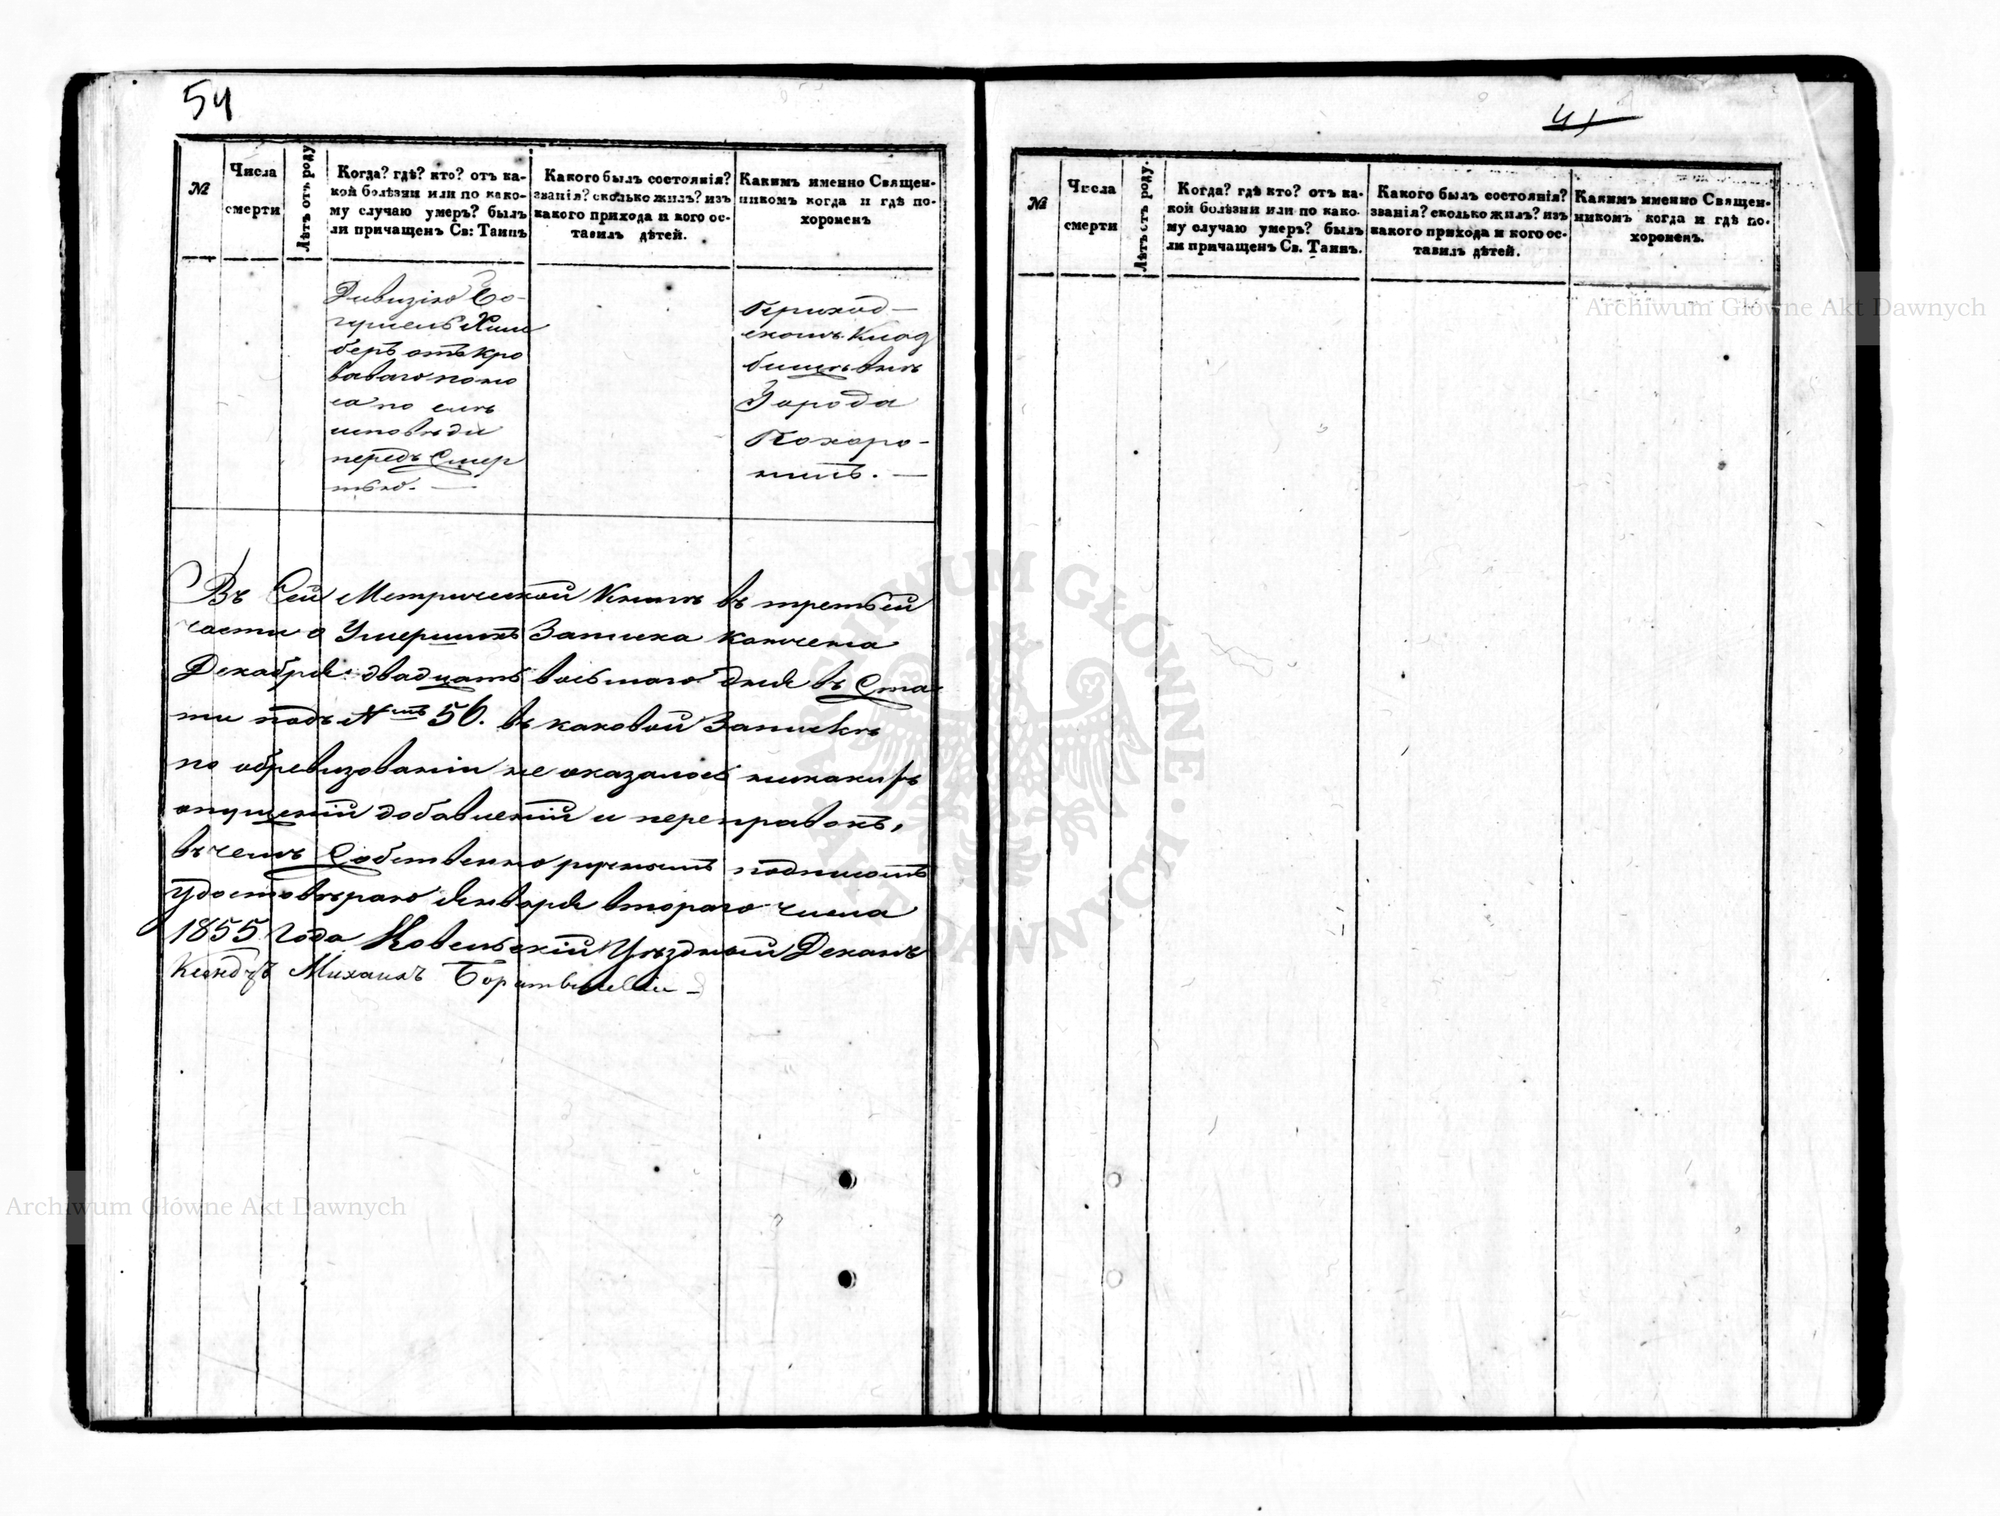 54
№
Числа
смерти
Лѣтъ отъ роду
Когда? гдѣ? кто? отъ ка-
кой болѣзни или по како-
му случаю умеръ? былъ
ли причащенъ Св: Таинъ
Какого былъ состоянія?
званія? сколько жилъ? изъ
какого прихода и кого ос-
тавилъ дѣтей.
Какимъ именно Священ-
никомъ когда и гдѣ по-
хороненъ
отъ кро
ваваго поно
са по
исповѣди
передъ Смер
тью. —
Приход-
скомъ Клад
бищѣ
Города
Похоро-
нилъ. —
Въ Сей Метрической Книгѣ въ третьей
части о Умершихъ Записка кончена
Декабря двадцать восьмого дня въ Ста-
ти подъ №мъ 56. въ каковой Запискѣ
по обревизованіи не оказалось никакихъ
опущеній добавленій и переправокъ,
въ чемъ Собственноручнымъ подписомъ
удостовѣряю Января второго числа
1855 года Ковельскій Уѣздный Деканъ
Ксендзъ Михаилъ
41
№
Числа
смерти
Лѣтъ отъ роду.
Когда? гдѣ кто? отъ ка-
кой болѣзни или по како-
му случаю умеръ? былъ
ли причащенъ Св. Таинъ.
Какого былъ состоянія?
званія? сколько жилъ? изъ
какого прихода и кого ос-
тавилъ дѣтей.
Какимъ именно Священ-
никомъ когда и гдѣ по-
хороненъ.
Archiwum Główne Akt Dawnych
ARCHIWUM GŁÓWNE · AKT DAWNYCH ·
Archiwum Główne Akt Dawnych